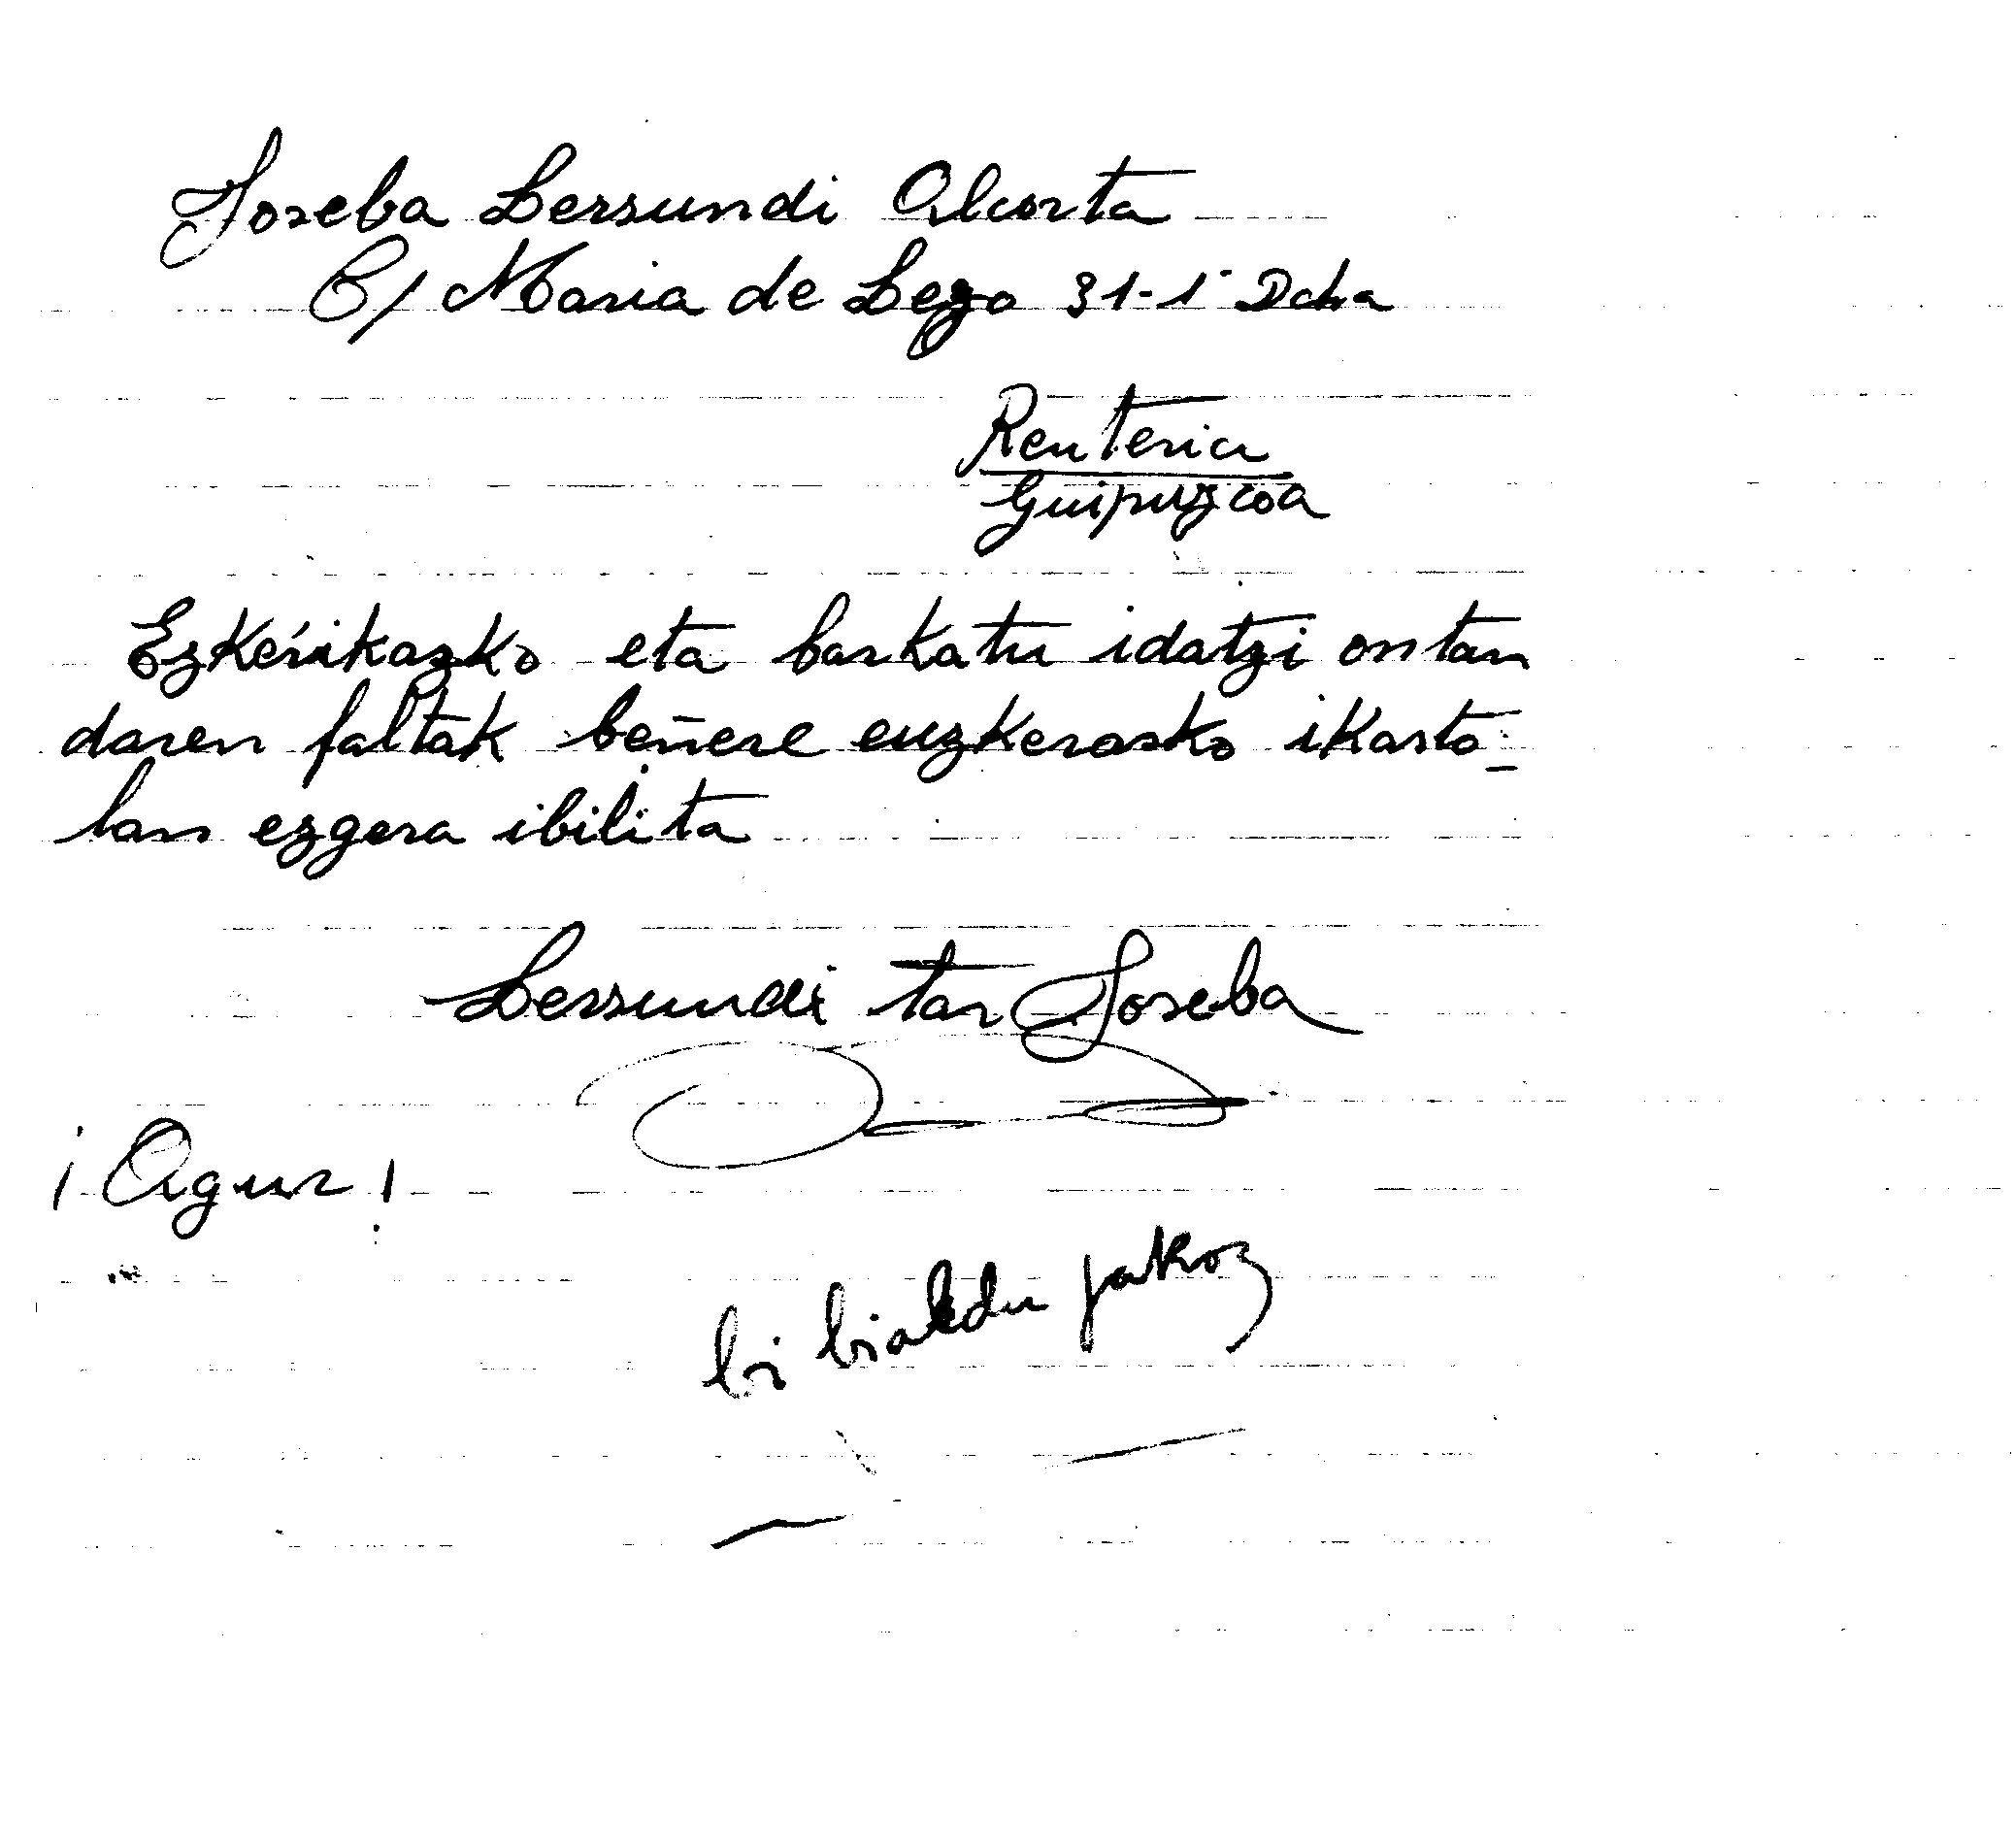 Joseba Lersundi Alcorta
C/ Maria de Lezo 31-1º Dcha
Renteria
Guipuzcoa
Ezkeŕikazko eta barkatu idatzi ontan
daren faltak beñere euzkerasko ikasto-
lan ezgera ibilita
Lersundi tar Joseba
¡Agur!
bi bialdu jakoz